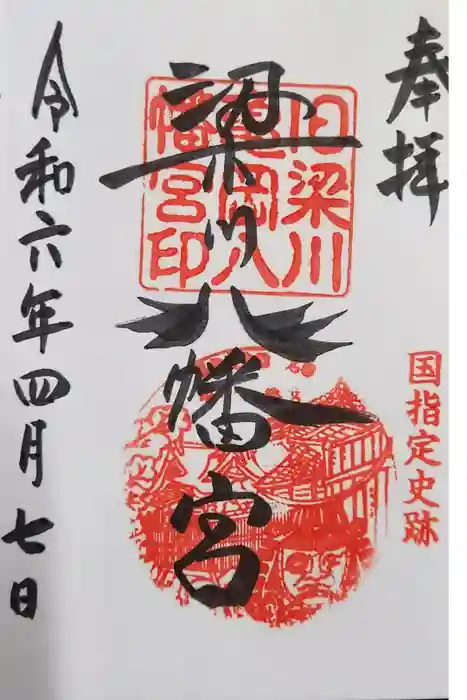 奉拝
国指定史跡
旧梁川
亀岡八
幡宮印
梁川八幡宮
令和六年四月七日